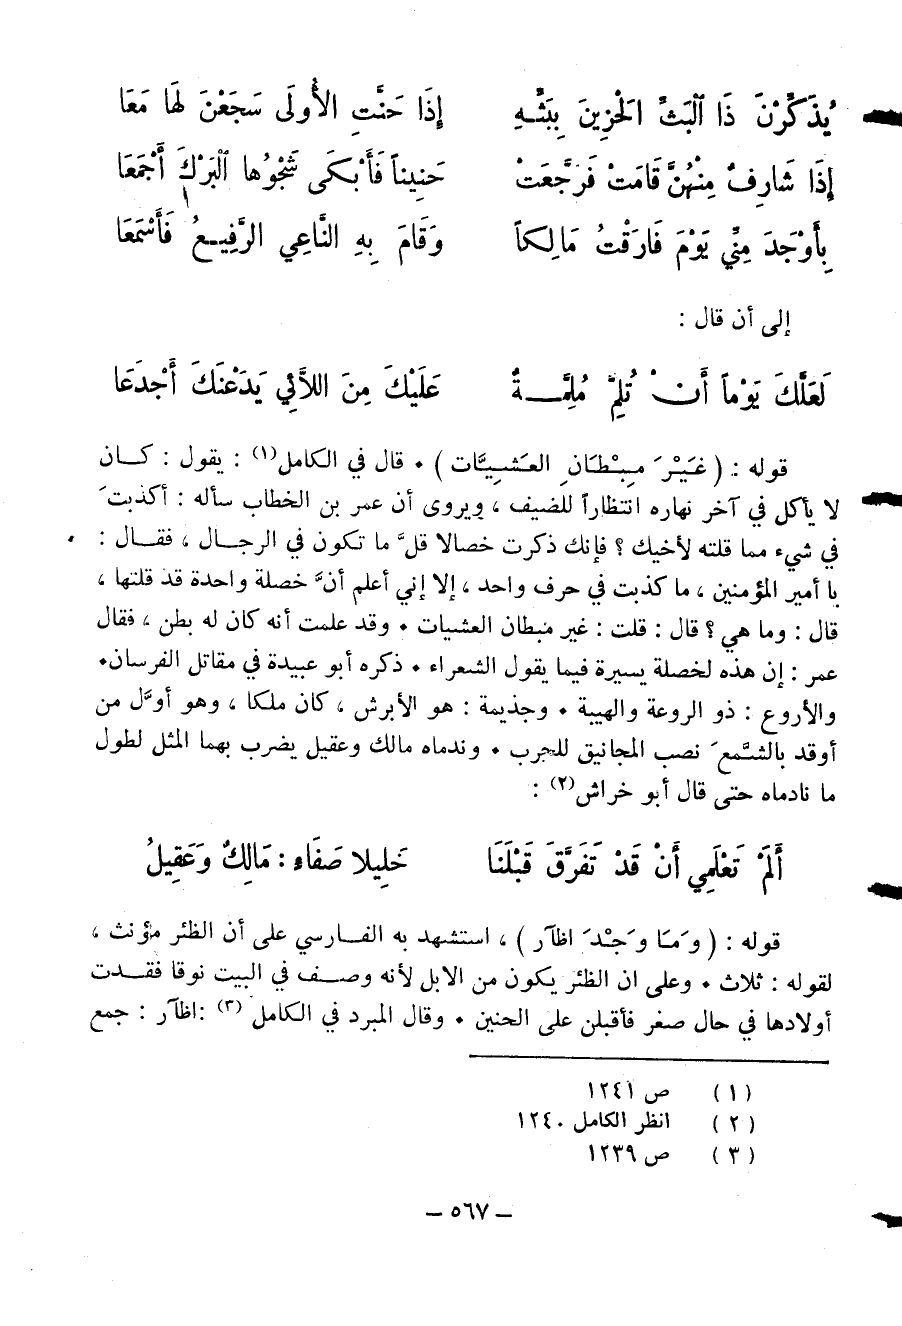 يُذَكِّرْنَ ذَا الْبَثِّ الْحَزِينَ بِبَثِّهِ إِذَا حَنَّتِ الْأُولَى سَجَعْنَ لَهَا مَعَا
إِذَا شَارِفٌ مِنْهُنَّ قَامَتْ فَرَجَّعَتْ حَنِيناً فَأَبْكَى شَجْوُها الْبَرْكَ أَجْمَعَا
بِأَوْجَدَ مِنِّي يَوْمَ فَارَقْتُ مَالِكاً وَقَامَ بِهِ النَّاعِي الرَّفِيعُ فَأَسْمَعَا
إلى أن قال :
لَعَلَّكَ يَوْماً أَنْ تُلِمَّ مُلِمَّةٌ عَلَيْكَ مِنَ اللاَّئِي يَدَعْنَكَ أَجْدَعَا
قوله : ( غَيْرَ مِبْطَانِ العَشِيَّات ) ٠ قال في الكامل(١) : يقول : كان
لا يأكل في آخر نهاره انتظاراً للضيف ، ويروى أن عمر بن الخطاب سأله : أكذبتَ
في شيء مما قلته لأخيك ؟ فإنك ذكرت خصالا قلَّ ما تكون في الرجال ، فقال :
يا أمير المؤمنين ، ما كذبت في حرف واحد ، إلا إني أعلم أنَّ خصلة واحدة قد قلتها ،
قال : وما هي ؟ قال : قلت : غير مبطان العشيات ٠ وقد علمت أنه كان له بطن ، فقال
عمر : إن هذه لخصلة يسيرة فيما يقول الشعراء ٠ ذكره أبو عبيدة في مقاتل الفرسان٠
والأروع : ذو الروعة والهيبة ٠ وجذيمة : هو الأبرش ، كان ملكا ، وهو أوَّل من
أوقد بالشَّمعَ نصب المجانيق للحرب ٠ وندماه مالك وعقيل يضرب بهما المثل لطول
ما نادماه حتى قال أبو خراش(٢) :
أَلَمْ تَعْلَمِي أَنْ قَدْ تَفَرَّقَ قَبْلَنَا خَلِيلا صَفَاءٍ : مَالِكٌ وَعَقِيلُ
قوله : ( وَمَا وَجْدَ اظآر ) ، استشهد به الفارسي على أن الظئر مؤنث ،
لقوله : ثلاث ٠ وعلى ان الظئر يكون من الابل لأنه وصف في البيت نوقا فقدت
أولادها في حال صغر فأقبلن على الحنين ٠ وقال المبرد في الكامل (٣) :اظآر : جمع
(١) ص ١٢٤١
(٢) انظر الكامل ١٢٤٠
(٣) ص ١٢٣٩
– ٥٦٧ –